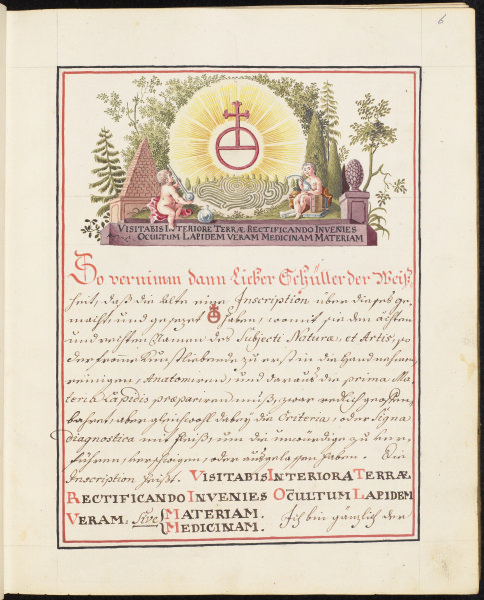 6
VISITABIS INTERIORE TERRÆ RECTIFICANDO INVENIES
OCULTUM LAPIDEM VERAM MEDICINAM MATERIAM
So vernimm dann Lieber Schüller der Weiß,
heit, daß die alte eine Inscription über dießes ge,
macht, und gesezet haben, womit sie den ächten
und rechten Namen des Subjecti Naturæ, et Artis, so
der fromme Kunstliebende zu erst in die Hand nehmen,
reinigen, Anatomiren, und daraus die prima Ma,
teria Lapidis præpariren muß, zwar redlich geoffen,
bahret, aber gleichwohl dabey die Criteria, oder Signa
diagnostica mit fleiß, um die unwürdige zu ver,
führen, verschwigen, oder ausgelassen haben. Die
Inscription heißt. VISITABIS INTERIORA TERRÆ
RECTIFICANDO INVENIES OCULTUM LAPIDEM
VERAM, Sive MATERIAM.
MEDICINAM. Ich bin gänzlich der